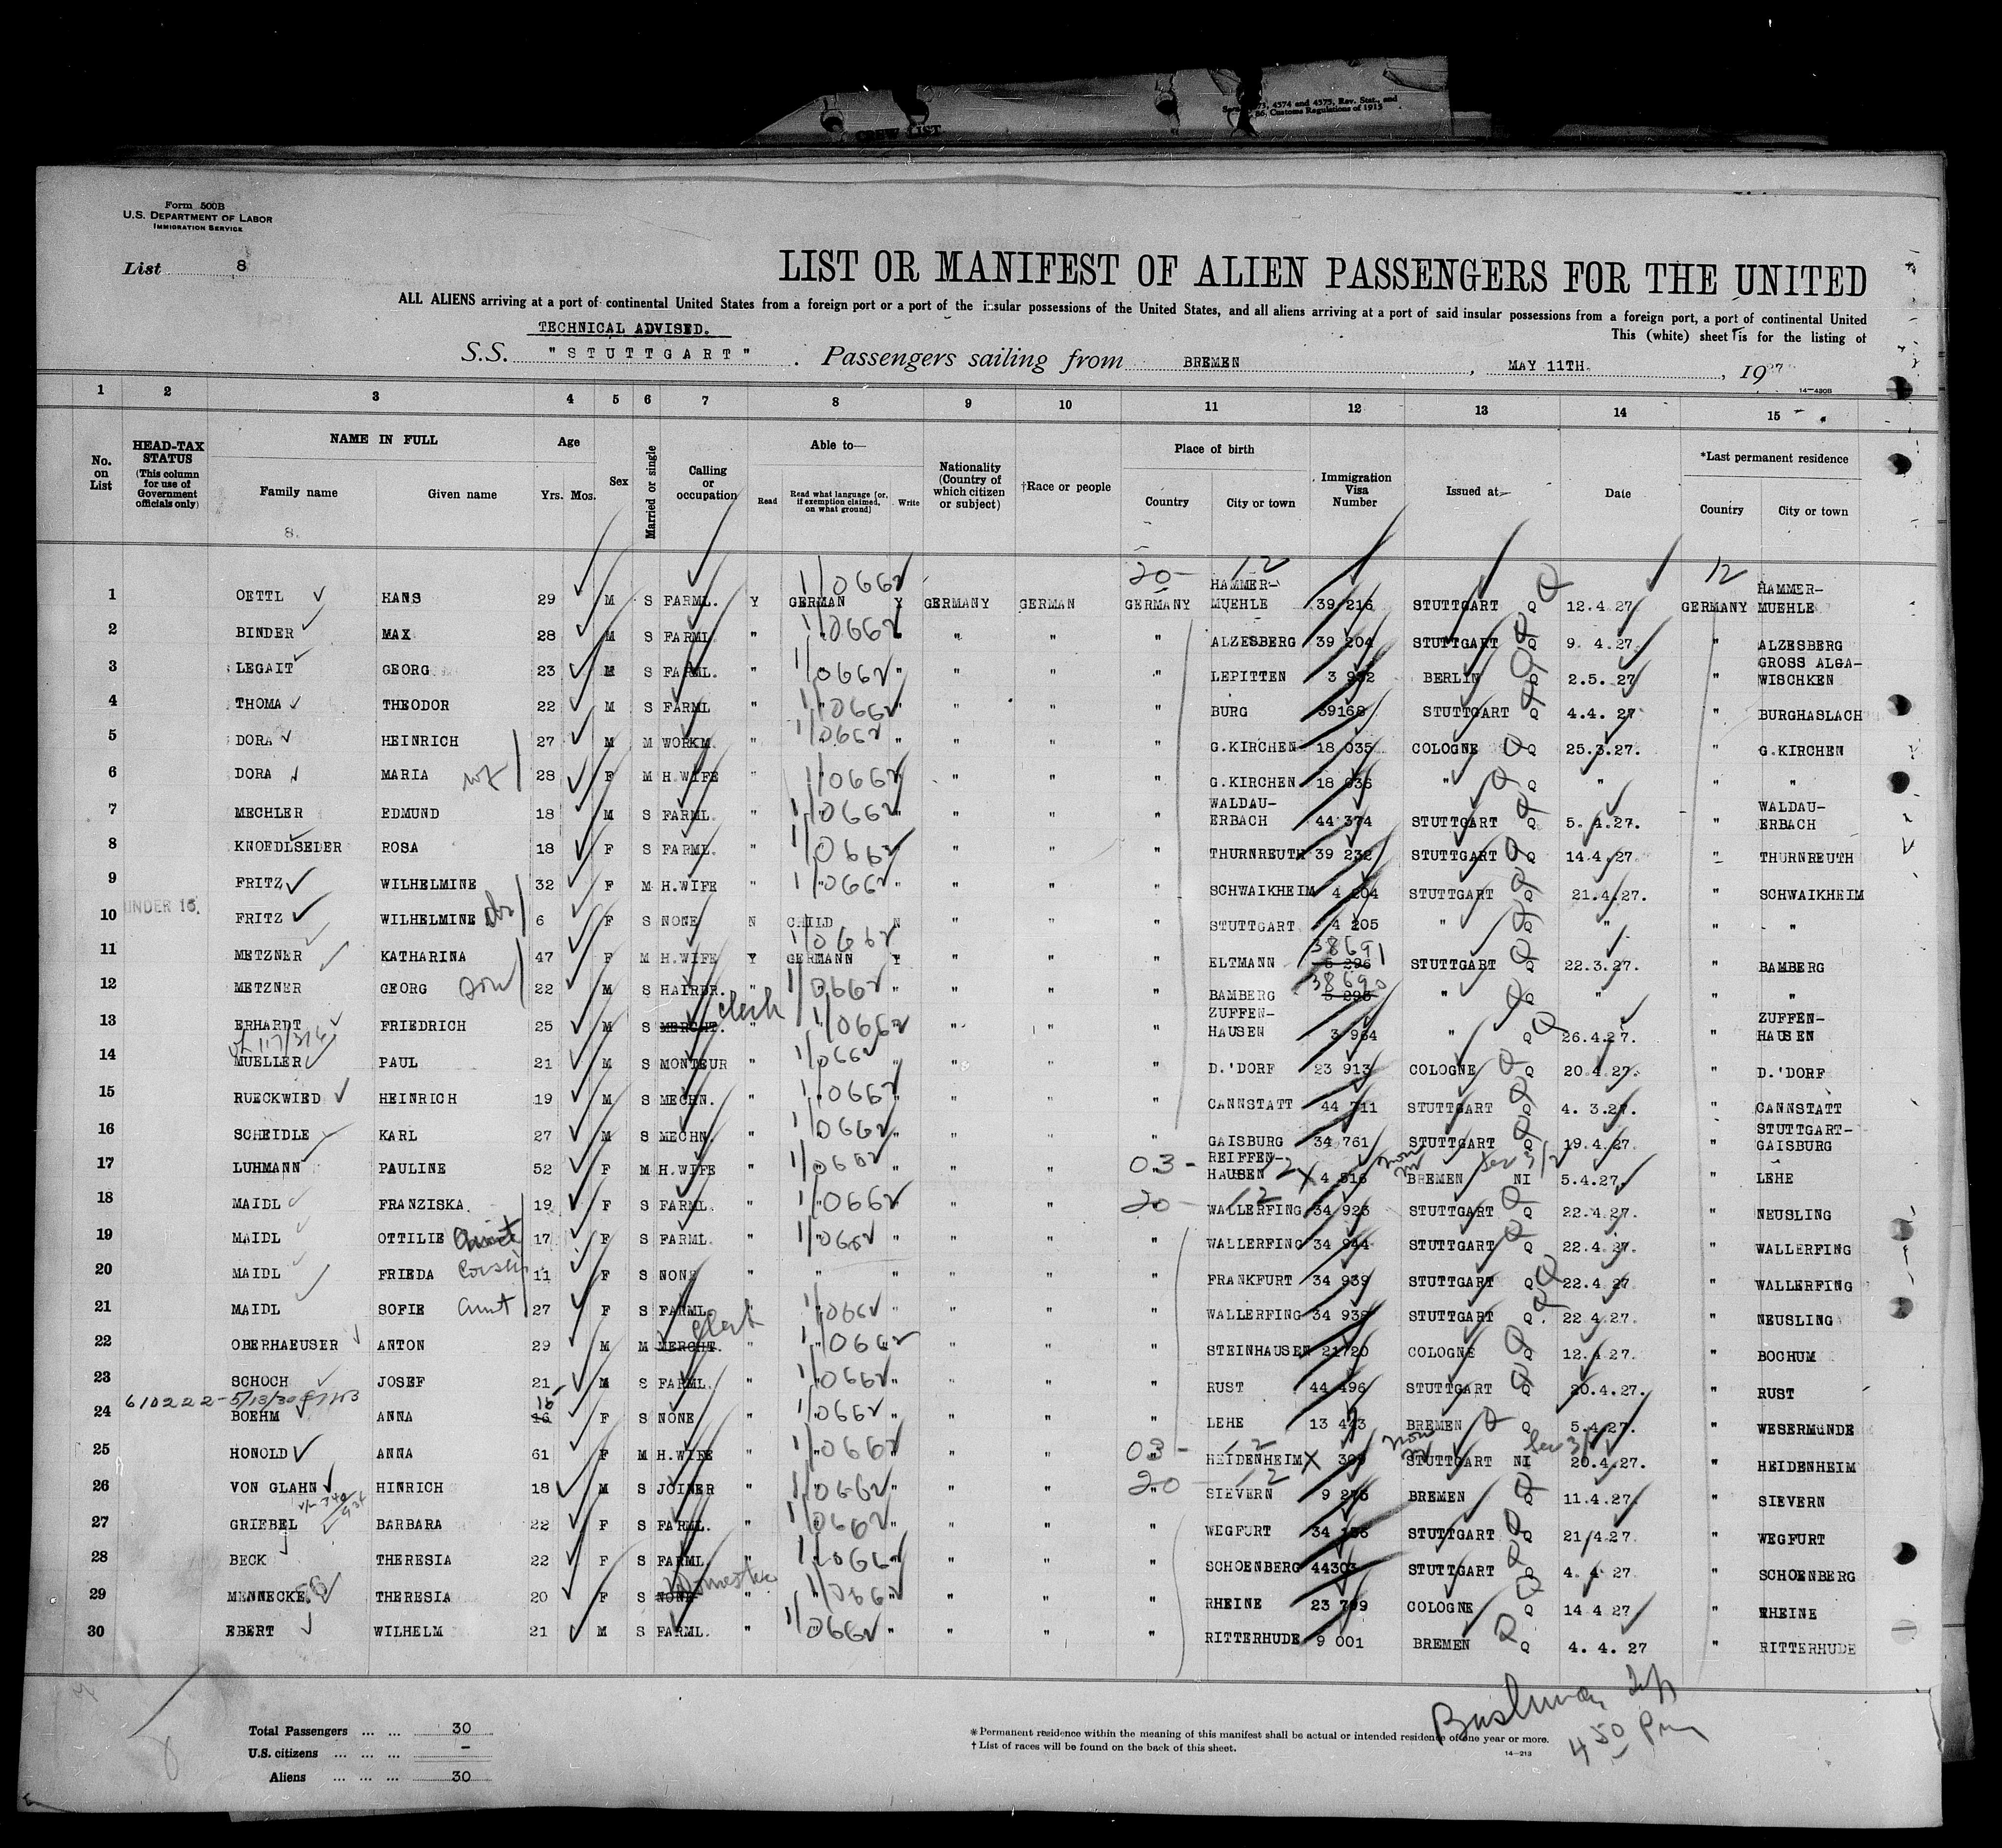 CREW LIST
4374 and 4375, Rev. Stat., and
Customs Regulations of 1915
Form 500B
U.S. DEPARTMENT OF LABOR
IMMIGRATION SERVICE
List 8
LIST OR MANIFEST OF ALIEN PASSENGERS FOR THE UNITED
ALL ALIENS arriving at a port of continental United States from a foreign port or a port of the insular possessions of the United States, and all aliens arriving at a port of said insular possessions from a foreign port, a port of continental United
This (white) sheet is for the listing of
TECHNICAL ADVISED.
S.S. "STUTTGART" . Passengers sailing from BREMEN , MAY 11TH. , 1927
14-430B
1 2 3 4 5 6 7 8 9 10 11 12 13 14 15
No. on List
HEAD-TAX STATUS (This column for use of Government officials only)
NAME IN FULL
Family name Given name
Age Yrs. Mos.
Sex
Married or single
Calling or occupation
Able to—
Read Read what language (or, if exemption claimed, on what ground) Write
Nationality (Country of which citizen or subject)
†Race or people
Place of birth
Country City or town
Immigration Visa Number
Issued at—
Date
*Last permanent residence
Country City or town
8.
20- 12 12
1 OETTL HANS 29 M S FARML. Y GERMAN Y GERMANY GERMAN GERMANY HAMMER-MUEHLE 39 216 STUTTGART Q 12.4.27 GERMANY HAMMER-MUEHLE
2 BINDER MAX 28 M S FARML. " " " " " " ALZESBERG 39 204 STUTTGART Q 9. 4.27. " ALZESBERG
3 LEGAIT GEORG 23 M S FARML. " " " " " " LEPITTEN BERLIN Q 2.5. 27 " GROSS ALGA-WISCHKEN
4 THOMA THEODOR 22 M S FARML " " " " " " BURG 39168 STUTTGART Q 4.4. 27 " BURGHASLACH
5 DORA HEINRICH 27 M M WORKM. " " " " " " G.KIRCHEN 18 035 COLOGNE Q 25.3.27. " G.KIRCHEN
6 DORA MARIA wf 28 F M H.WIFE " " " " " " G.KIRCHEN 18 036 " " " "
7 MECHLER EDMUND 18 M S FARML. " " " " " " WALDAU-ERBACH 44 374 STUTTGART Q 5. 4.27. " WALDAU-ERBACH
8 KNOEDLSEDER ROSA 18 F S FARML. " " " " " " THURNREUTH 39 232 STUTTGART Q 14.4.27. " THURNREUTH
9 FRITZ WILHELMINE 32 F M H.WIFE " " " " " " SCHWAIKHEIM 4 204 STUTTGART Q 21.4.27. " SCHWAIKHEIM
10 UNDER 16. FRITZ WILHELMINE 6 F S NONE N CHILD N " " " STUTTGART 4 205 " Q " " "
11 METZNER KATHARINA 47 F M H.WIFE Y GERMANN Y " " " ELTMANN 38691 5 296 STUTTGART Q 22.3.27. " BAMBERG
12 METZNER GEORG son 22 M S HAIRDR. " " " " " " BAMBERG 38690 5 295 " " " "
13 ERHARDT FRIEDRICH 25 M S MERCHT. clerk " " " " " " ZUFFEN-HAUSEN 3 964 " Q 26.4.27. " ZUFFEN-HAUSEN
14 MUELLER PAUL 21 M S MONTEUR " " " " " " D.'DORF 23 913 COLOGNE Q 20.4.27. " D.'DORF
15 RUECKWIED HEINRICH 19 M S MECHN. " " " " " " CANNSTATT 44 711 STUTTGART Q 4. 3.27. " CANNSTATT
16 SCHEIDLE KARL 27 M S MECHN. " " " " " " GAISBURG 34 761 STUTTGART Q 19.4.27. " STUTTGART-GAISBURG
17 LUHMANN PAULINE 52 F M H.WIFE " " " " " 03- " REIFFEN-HAUSEN 12 X 4 816 BREMEN NI 5.4.27. " LEHE
18 MAIDL FRANZISKA 19 F S FARML. " " " " " 20- 12 WALLERFING 34 923 STUTTGART Q 22.4.27. " NEUSLING
19 MAIDL OTTILIE 17 F S FARML. " " " " " " WALLERFING 34 944 STUTTGART Q 22.4.27. " WALLERFING
20 MAIDL FRIEDA Cousin 11 F S NONE " " " " " " FRANKFURT 34 939 STUTTGART Q 22.4.27 " WALLERFING
21 MAIDL SOFIE aunt 27 F S FARML. " " " " " " WALLERFING 34 938 STUTTGART Q. 22 4.27. " NEUSLING
22 OBERHAEUSER ANTON 29 M M MERCHT. clerk " " " " " " STEINHAUSEN 21720 COLOGNE Q 12.4.27. " BOCHUM
23 SCHOCH JOSEF 21 M S FARML. " " " " " " RUST 44 496 STUTTGART Q 20.4.27. " RUST
610222-5/13/30
24 BOEHM ANNA 16 F S NONE " " " " " " LEHE 13 443 BREMEN Q 5.4.27. " WESERMUNDE
25 HONOLD ANNA 61 F M H.WIFE " " " " " 03- " 12 HEIDENHEIM X 309 STUTTGART NI 20.4.27. " HEIDENHEIM
26 VON GLAHN HINRICH 18 M S JOINER " " " " " 20- " 12 SIEVERN BREMEN Q 11.4.27. " SIEVERN
27 GRIEBEL BARBARA 22 F S FARML. " " " " " " WEGFURT STUTTGART Q 21/4.27. " WEGFURT
28 BECK THERESIA 22 F S FARML. " " " " " " SCHOENBERG 44303 STUTTGART Q 4. 4. 27 " SCHOENBERG
29 MENNECKE THERESIA 20 F S NONE Domestic " " " " " " RHEINE 23 799 COLOGNE Q 14 4 27 " RHEINE
30 EBERT WILHELM 21 M S FARML. " " " " " " RITTERHUDE 9 001 BREMEN Q 4. 4. 27 " RITTERHUDE
Total Passengers ... ... 30
U.S. citizens ... ... ... –
Aliens ... ... ... 30
* Permanent residence within the meaning of this manifest shall be actual or intended residence of one year or more.
† List of races will be found on the back of this sheet.
14-213
4 50 Pm